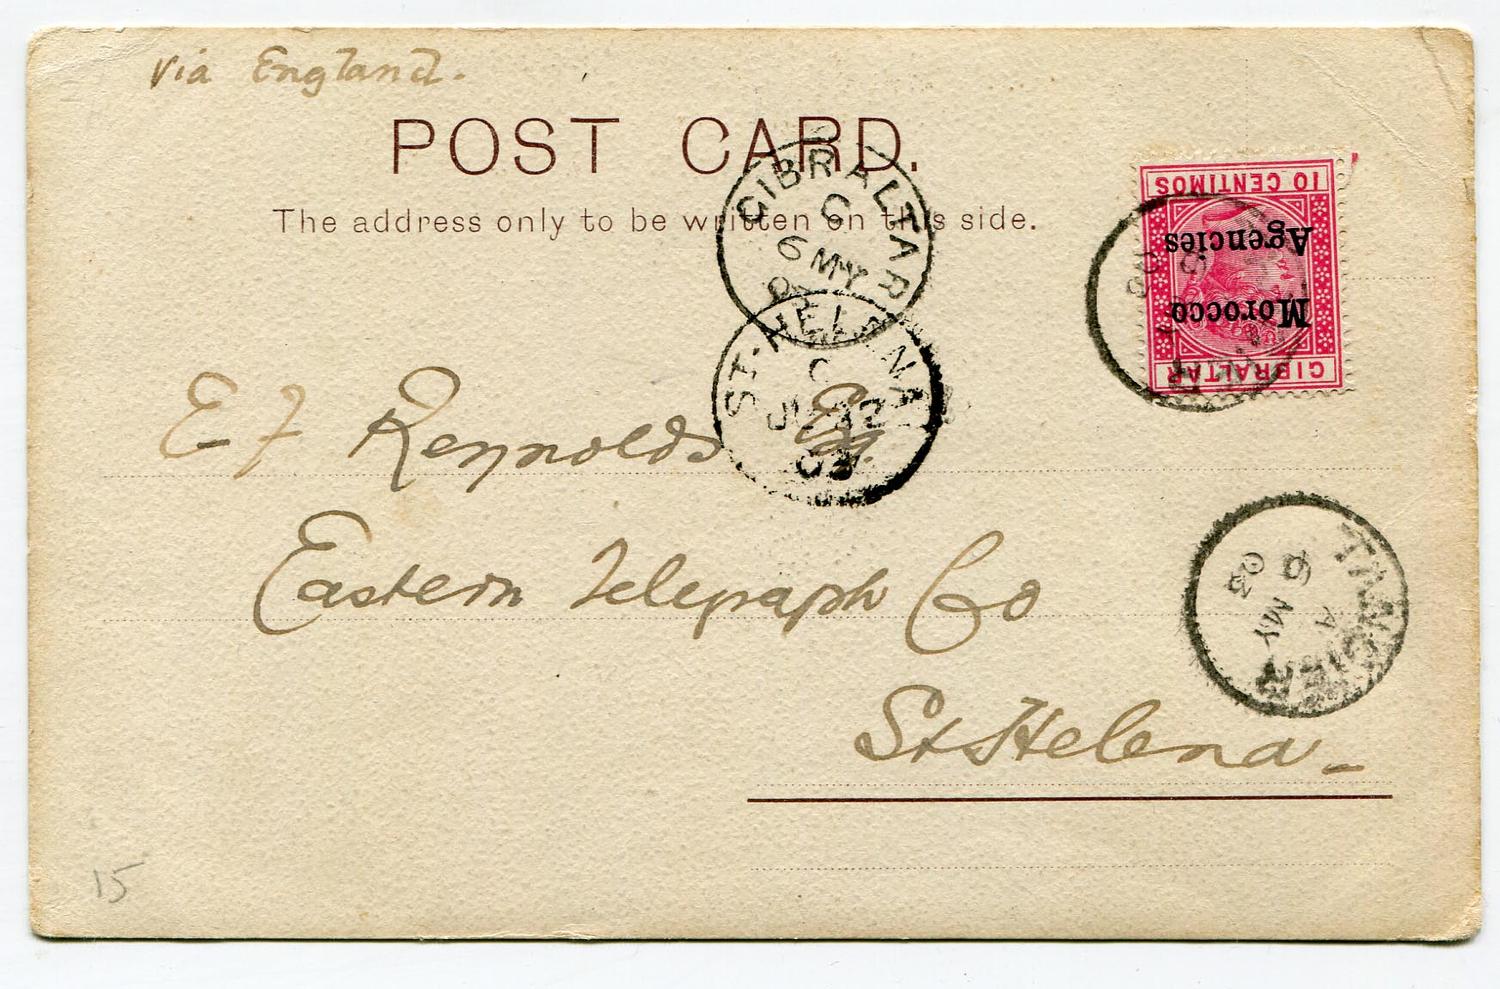 Via England.
POST CARD.
The address only to be written on this side.
10 CENTIMOS
Morocco
Agencies
GIBRALTAR
GIBRALTAR
C
6 MY
ST. HELENA
C
03
E F Reynolds Esq.
Eastern Telegraph Co
St Helena -
TANGIER
A
6 MY
03
15